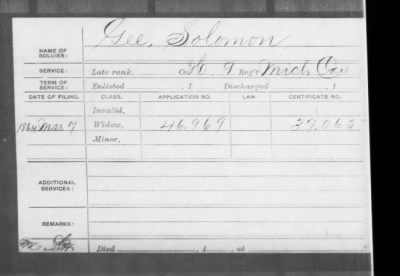 Gee, Solomon
NAME OF SOLDIER:
SERVICE: Late rank, Co. H. 9 Reg't Mich. Cav
TERM OF SERVICE: Enlisted , 1 Discharged , 1
DATE OF FILING. CLASS. APPLICATION NO. LAW. CERTIFICATE NO.
Invalid,
1864 Mar 7 Widow, 46,969 37,062
Minor,
ADDITIONAL SERVICES:
REMARKS:
Died , 1 , at